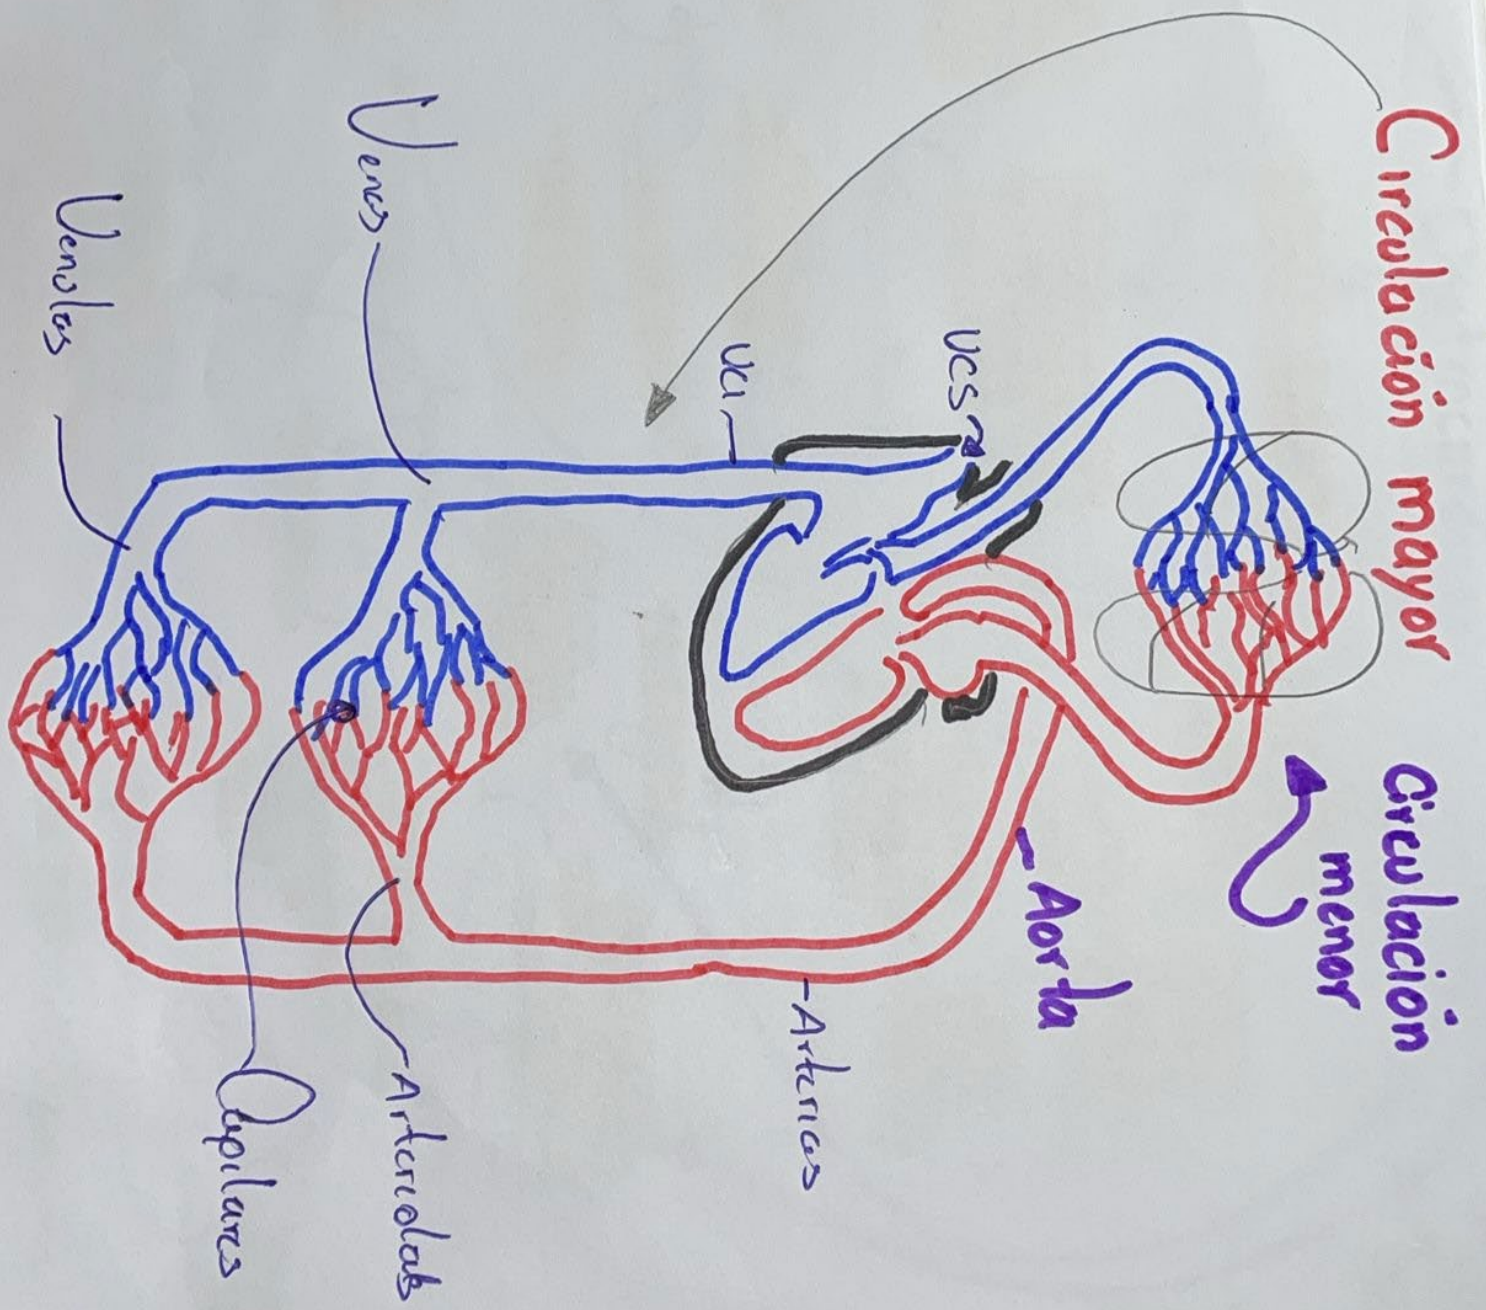 Circulación mayor
Circulación
menor
VCS
VCI
Aorta
Arterias
Venas
Arteriolas
Capilares
Venulas